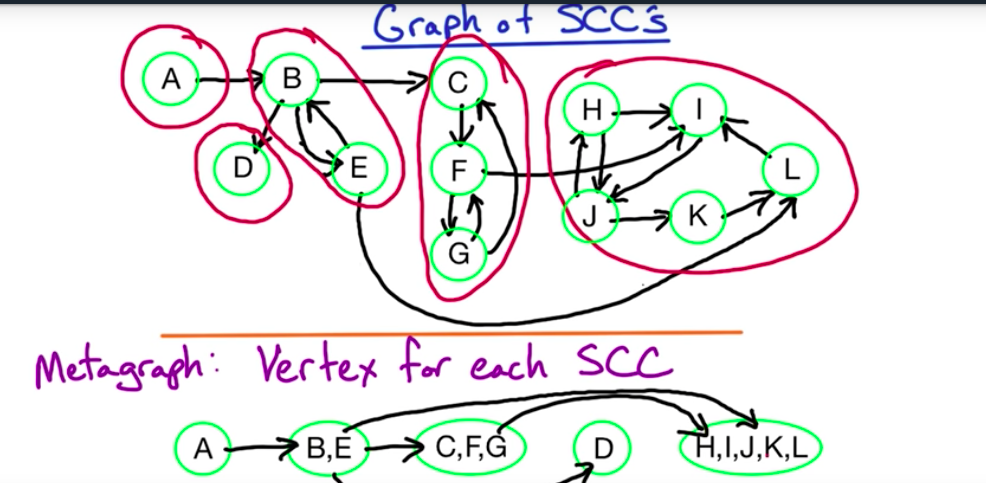 Graph of SCC's
A B C H I
D E F L
J K
G
Metagraph: Vertex for each SCC
A B,E C,F,G D H,I,J,K,L